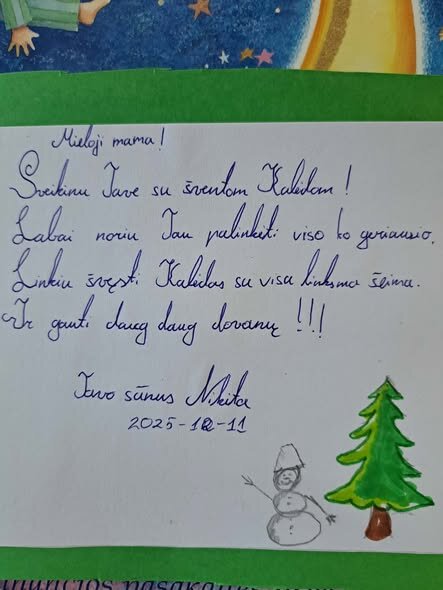 Mieloji mama!
Sveikinu Tave su šventom Kaledom!
Labai noriu Tau palinkėti viso ko geriausio.
Linkiu švęsti Kaledas su visa linksma šeima.
Ir gauti daug daug dovanų!!!
Tavo sūnus Nikita
2025-12-11